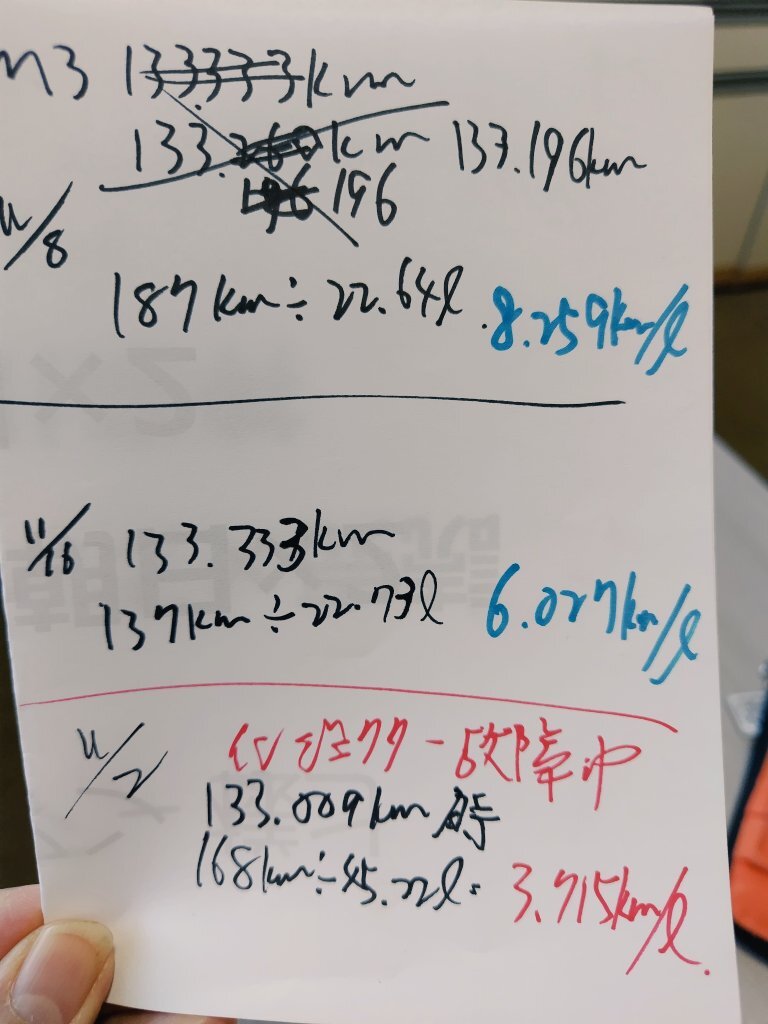 M3 133.333km
133.260km 133.196km
196 196
11/8
187km÷22.64ℓ 8.259km/ℓ
11/16 133.333km
137km÷22.73ℓ 6.027km/ℓ
11/2 故障中
133.009km時
168km÷45.22ℓ 3.715km/ℓ.